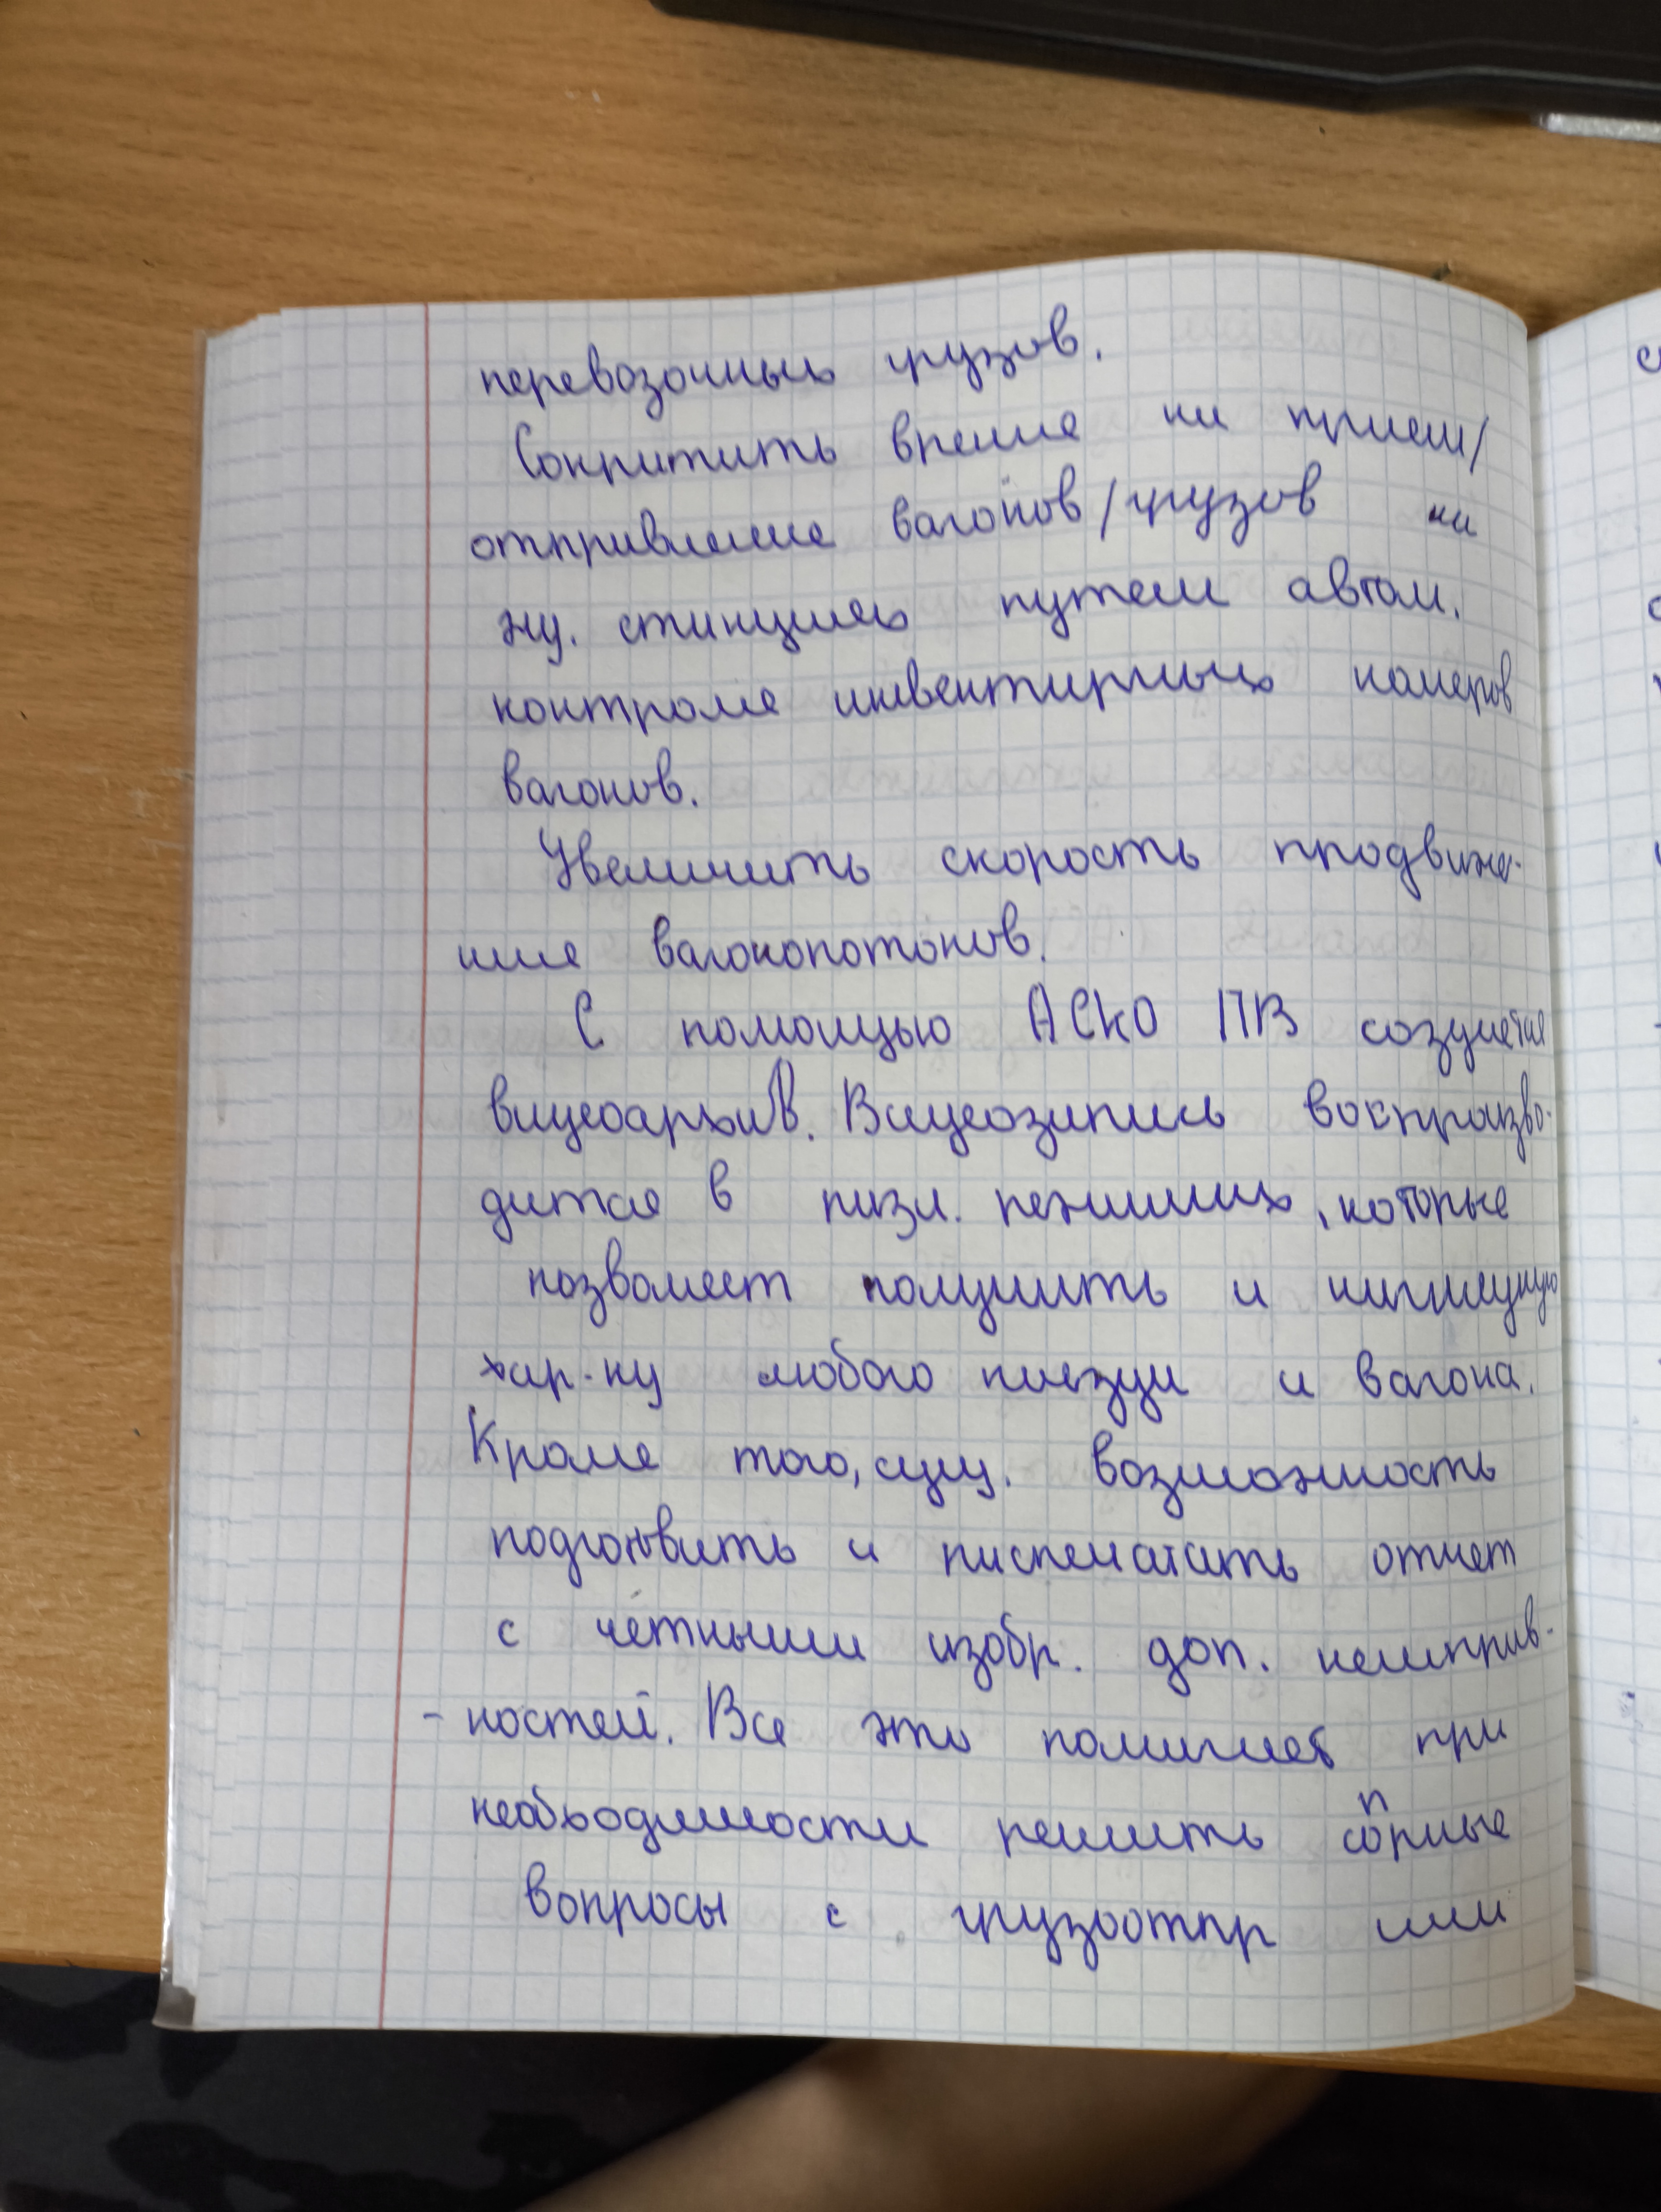 перевозочных грузов.
Сократить время на прием/
отправление вагонов/грузов на
жд. станциях путем автом.
контроля инвентарных номеров
вагонов.
Увеличить скорость продвиже-
ния вагонопотоков.
С помощью АСКО ПВ создается
видеоархив. Видеозапись воспроизво-
дится в разл. режимах, которые
позволяет получить и наглядную
хар-ку любого поезда и вагона.
Кроме того, сущ. возможность
подготовить и распечатать отчет
с четкными изобр. доп. неисправ-
-ностей. Все это помогает при
необходимости решить спорные
вопросы с грузоотпр или